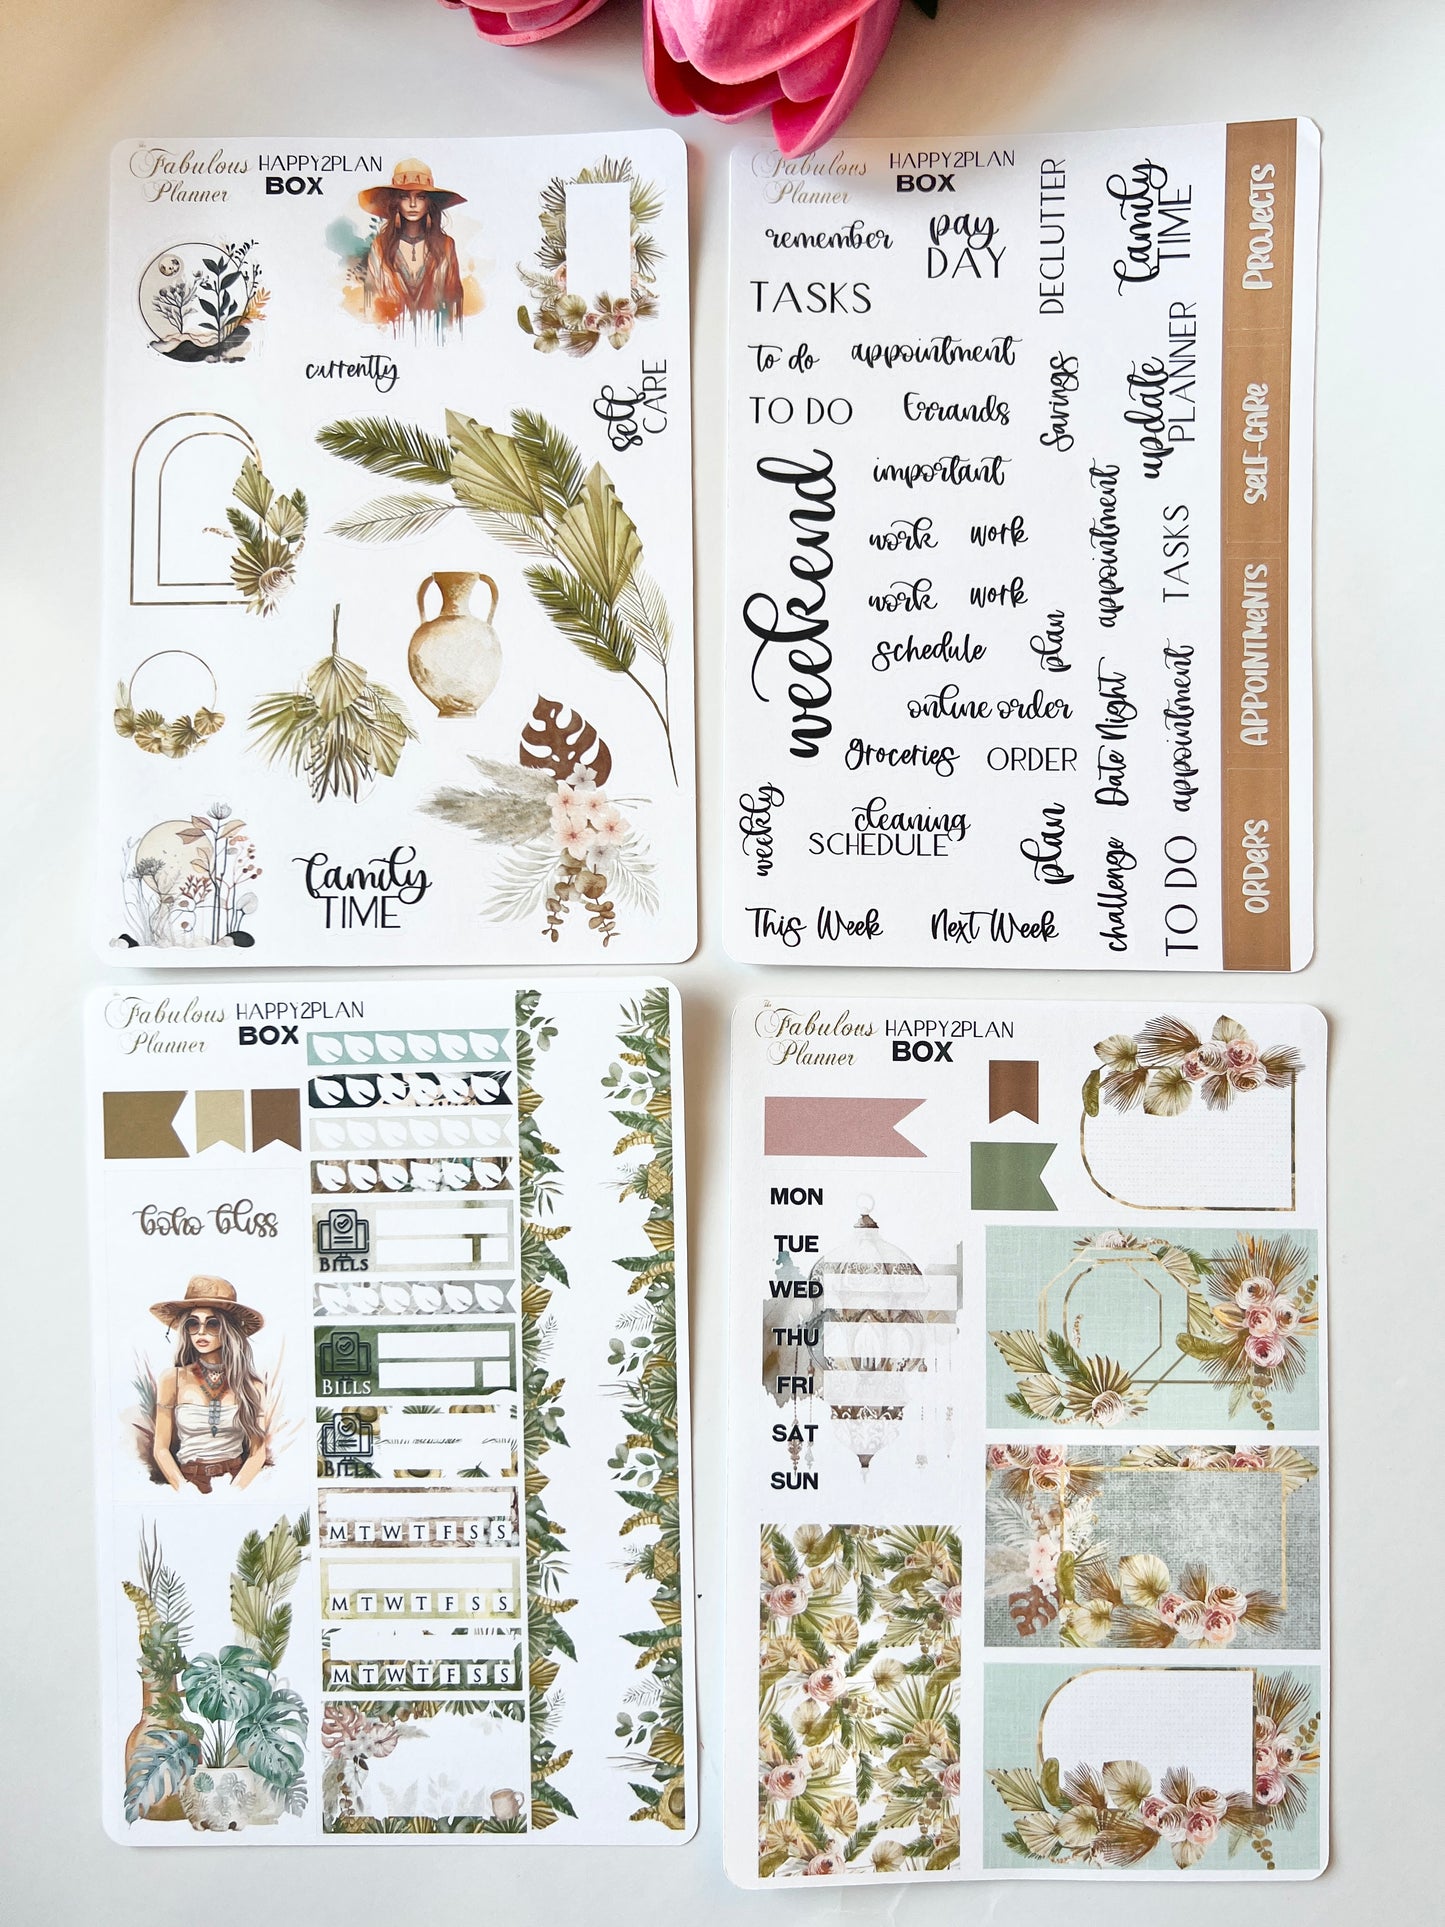 The
Fabulous
Planner
HAPPY2PLAN
BOX
currently
self
CARE
family
TIME
Fabulous
Planner
HAPPY2PLAN
BOX
remember
pay
DAY
DECLUTTER
family
TIME
TASKS
to do
appointment
TO DO
Errands
Savings
update
PLANNER
important
weekend
work work
work work
appointment
TASKS
schedule
plan
online order
groceries
ORDER
Date Night
appointment
weekly
cleaning
SCHEDULE
plan
challenge
TO DO
This Week
Next Week
PROJECTS
SELF-CARE
APPOINTMENTS
ORDERS
The
Fabulous
Planner
HAPPY2PLAN
BOX
boho bliss
BILLS
BILLS
BILLS
M T W T F S S
M T W T F S S
M T W T F S S
The
Fabulous
Planner
HAPPY2PLAN
BOX
MON
TUE
WED
THU
FRI
SAT
SUN